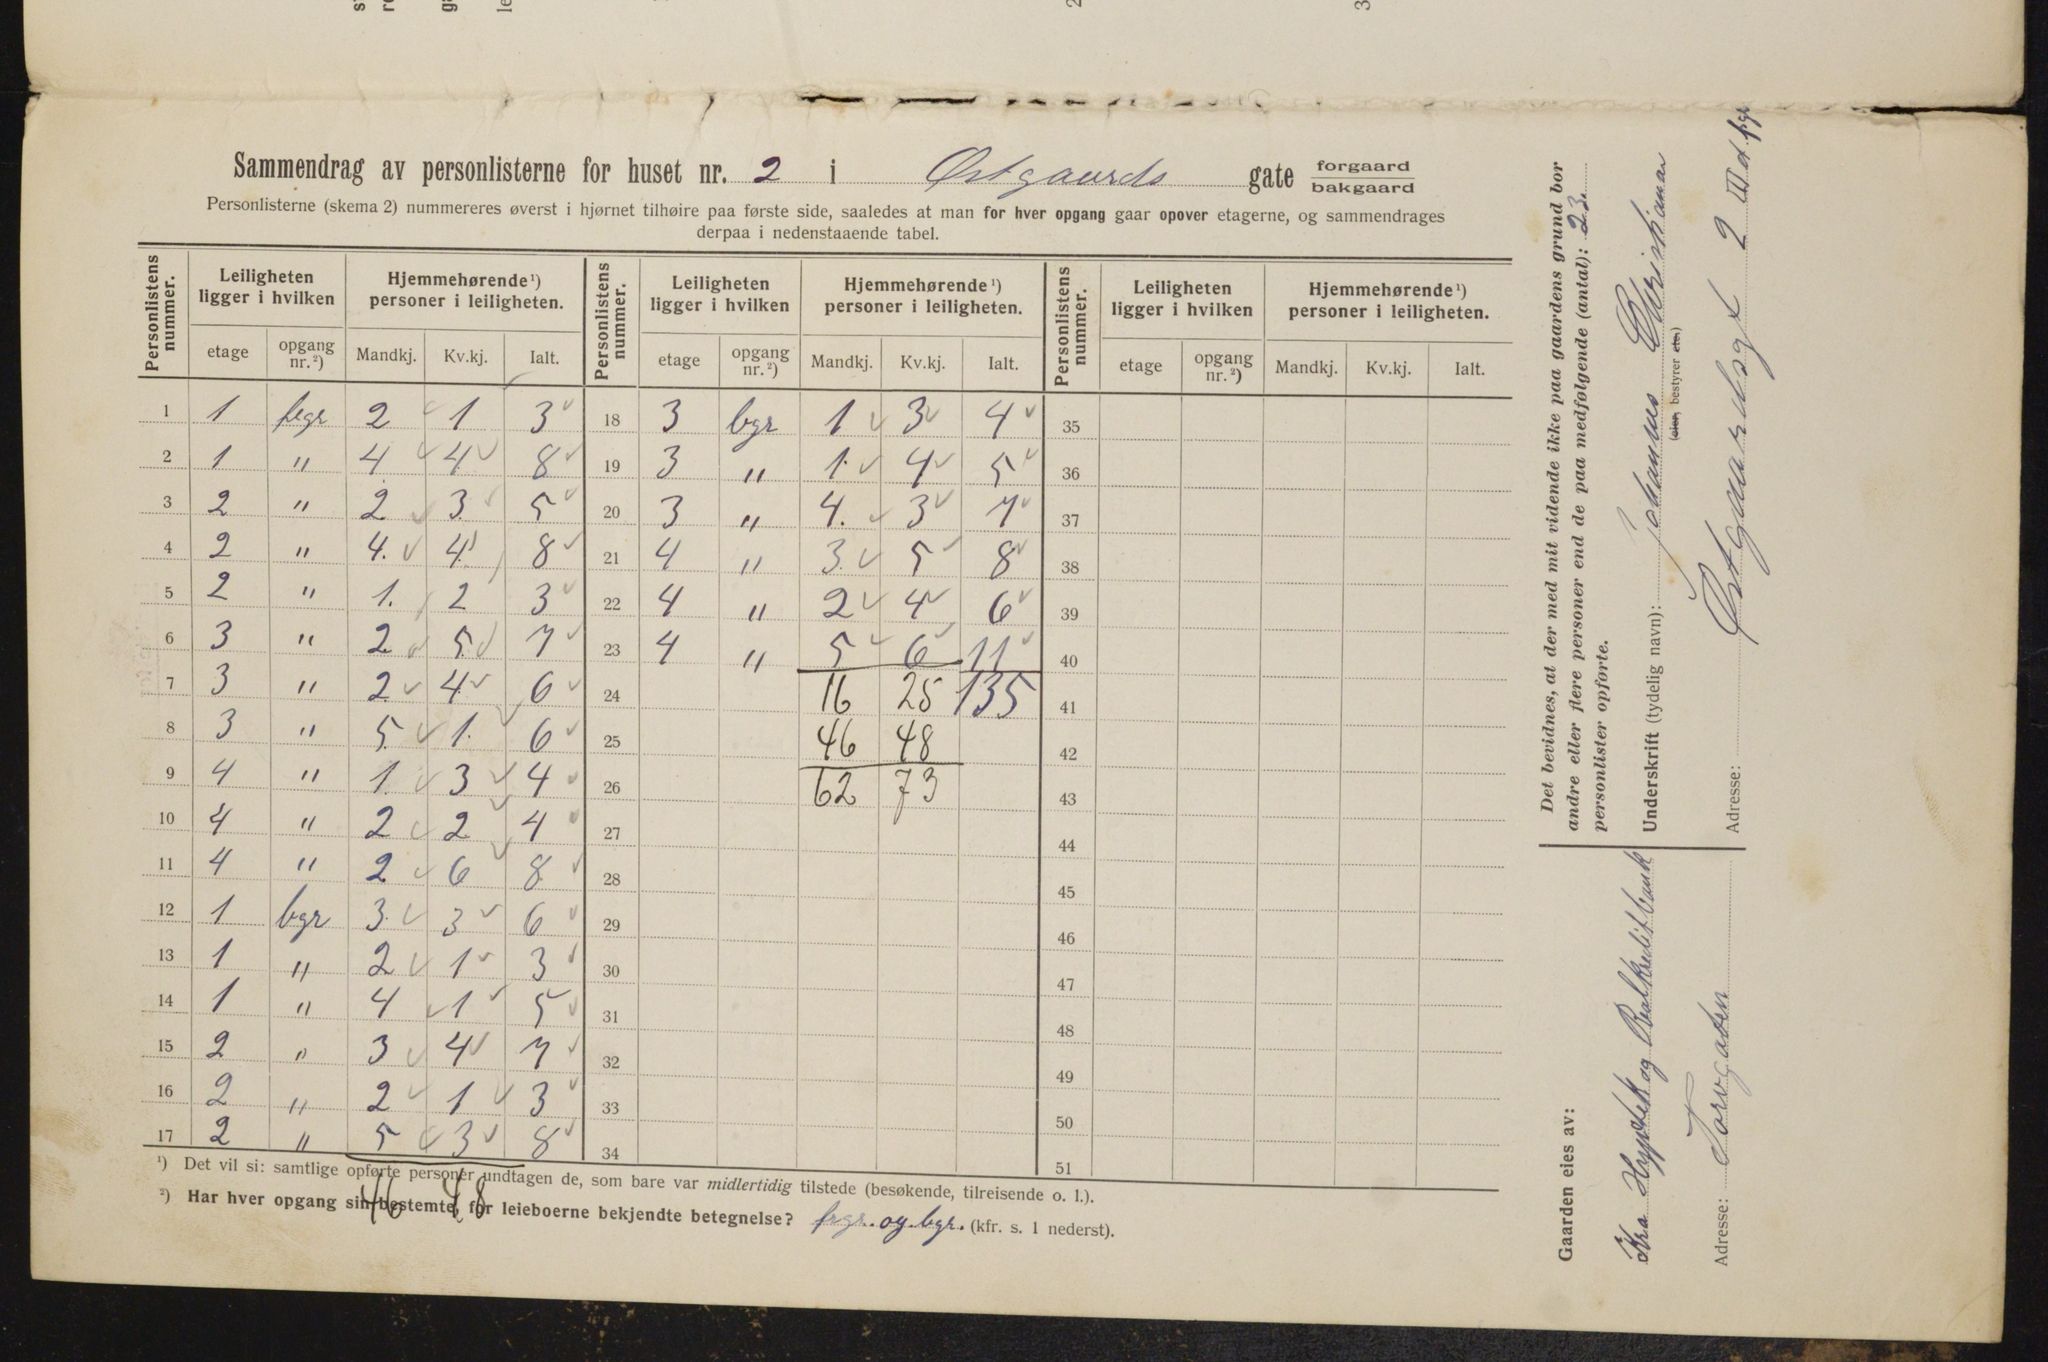 Sammendrag av personlisterne for huset nr. 2 i Østgaards gate forgaard bakgaard
Personlisterne (skema 2) nummereres øverst i hjørnet tilhøire paa første side, saaledes at man for hver opgang gaar opover etagerne, og sammendrages
derpaa i nedenstaaende tabel.
Personlistens nummer. Leiligheten ligger i hvilken Hjemmehørende¹) personer i leiligheten. Personlistens nummer. Leiligheten ligger i hvilken Hjemmehørende¹) personer i leiligheten. Personlistens nummer. Leiligheten ligger i hvilken Hjemmehørende¹) personer i leiligheten.
etage opgang nr.²) Mandkj. Kv.kj. Ialt. etage opgang nr.²) Mandkj. Kv.kj. Ialt. etage opgang nr.²) Mandkj. Kv.kj. Ialt.
1 1 frgr 2 1 3 18 3 bgr 1 3 4 35
2 1 " 4 4 8 19 3 " 1 4 5 36
3 2 " 2 3 5 20 3 " 4 3 7 37
4 2 " 4 4 8 21 4 " 3 5 8 38
5 2 " 1 2 3 22 4 " 2 4 6 39
6 3 " 2 5 7 23 4 " 5 6 11 40
7 3 " 2 4 6 24 16 25 135 41
8 3 " 5 1 6 25 46 48 42
9 4 " 1 3 4 26 62 73 43
10 4 " 2 2 4 27 44
11 4 " 2 6 8 28 45
12 1 bgr 3 3 6 29 46
13 1 " 2 1 3 30 47
14 1 " 4 1 5 31 48
15 2 " 3 4 7 32 49
16 2 " 2 1 3 33 50
17 2 " 5 3 8 34 51
46 48
¹) Det vil si: samtlige opførte personer undtagen de, som bare var midlertidig tilstede (besøkende, tilreisende o. l.).
²) Har hver opgang sin bestemte, for leieboerne bekjendte betegnelse? frgr. og bgr. (kfr. s. 1 nederst).
Det bevidnes, at der med mit vidende ikke paa gaardens grund bor
andre eller flere personer end de paa medfølgende (antal): 23
personlister opførte.
Underskrift (tydelig navn): Johannes Christiansen
(eier, bestyrer etc.)
Adresse: Østgaardsgt 2 III et frgr
Gaarden eies av:
Kra Hypotek og Realkreditbank
Adresse: Torvgaten